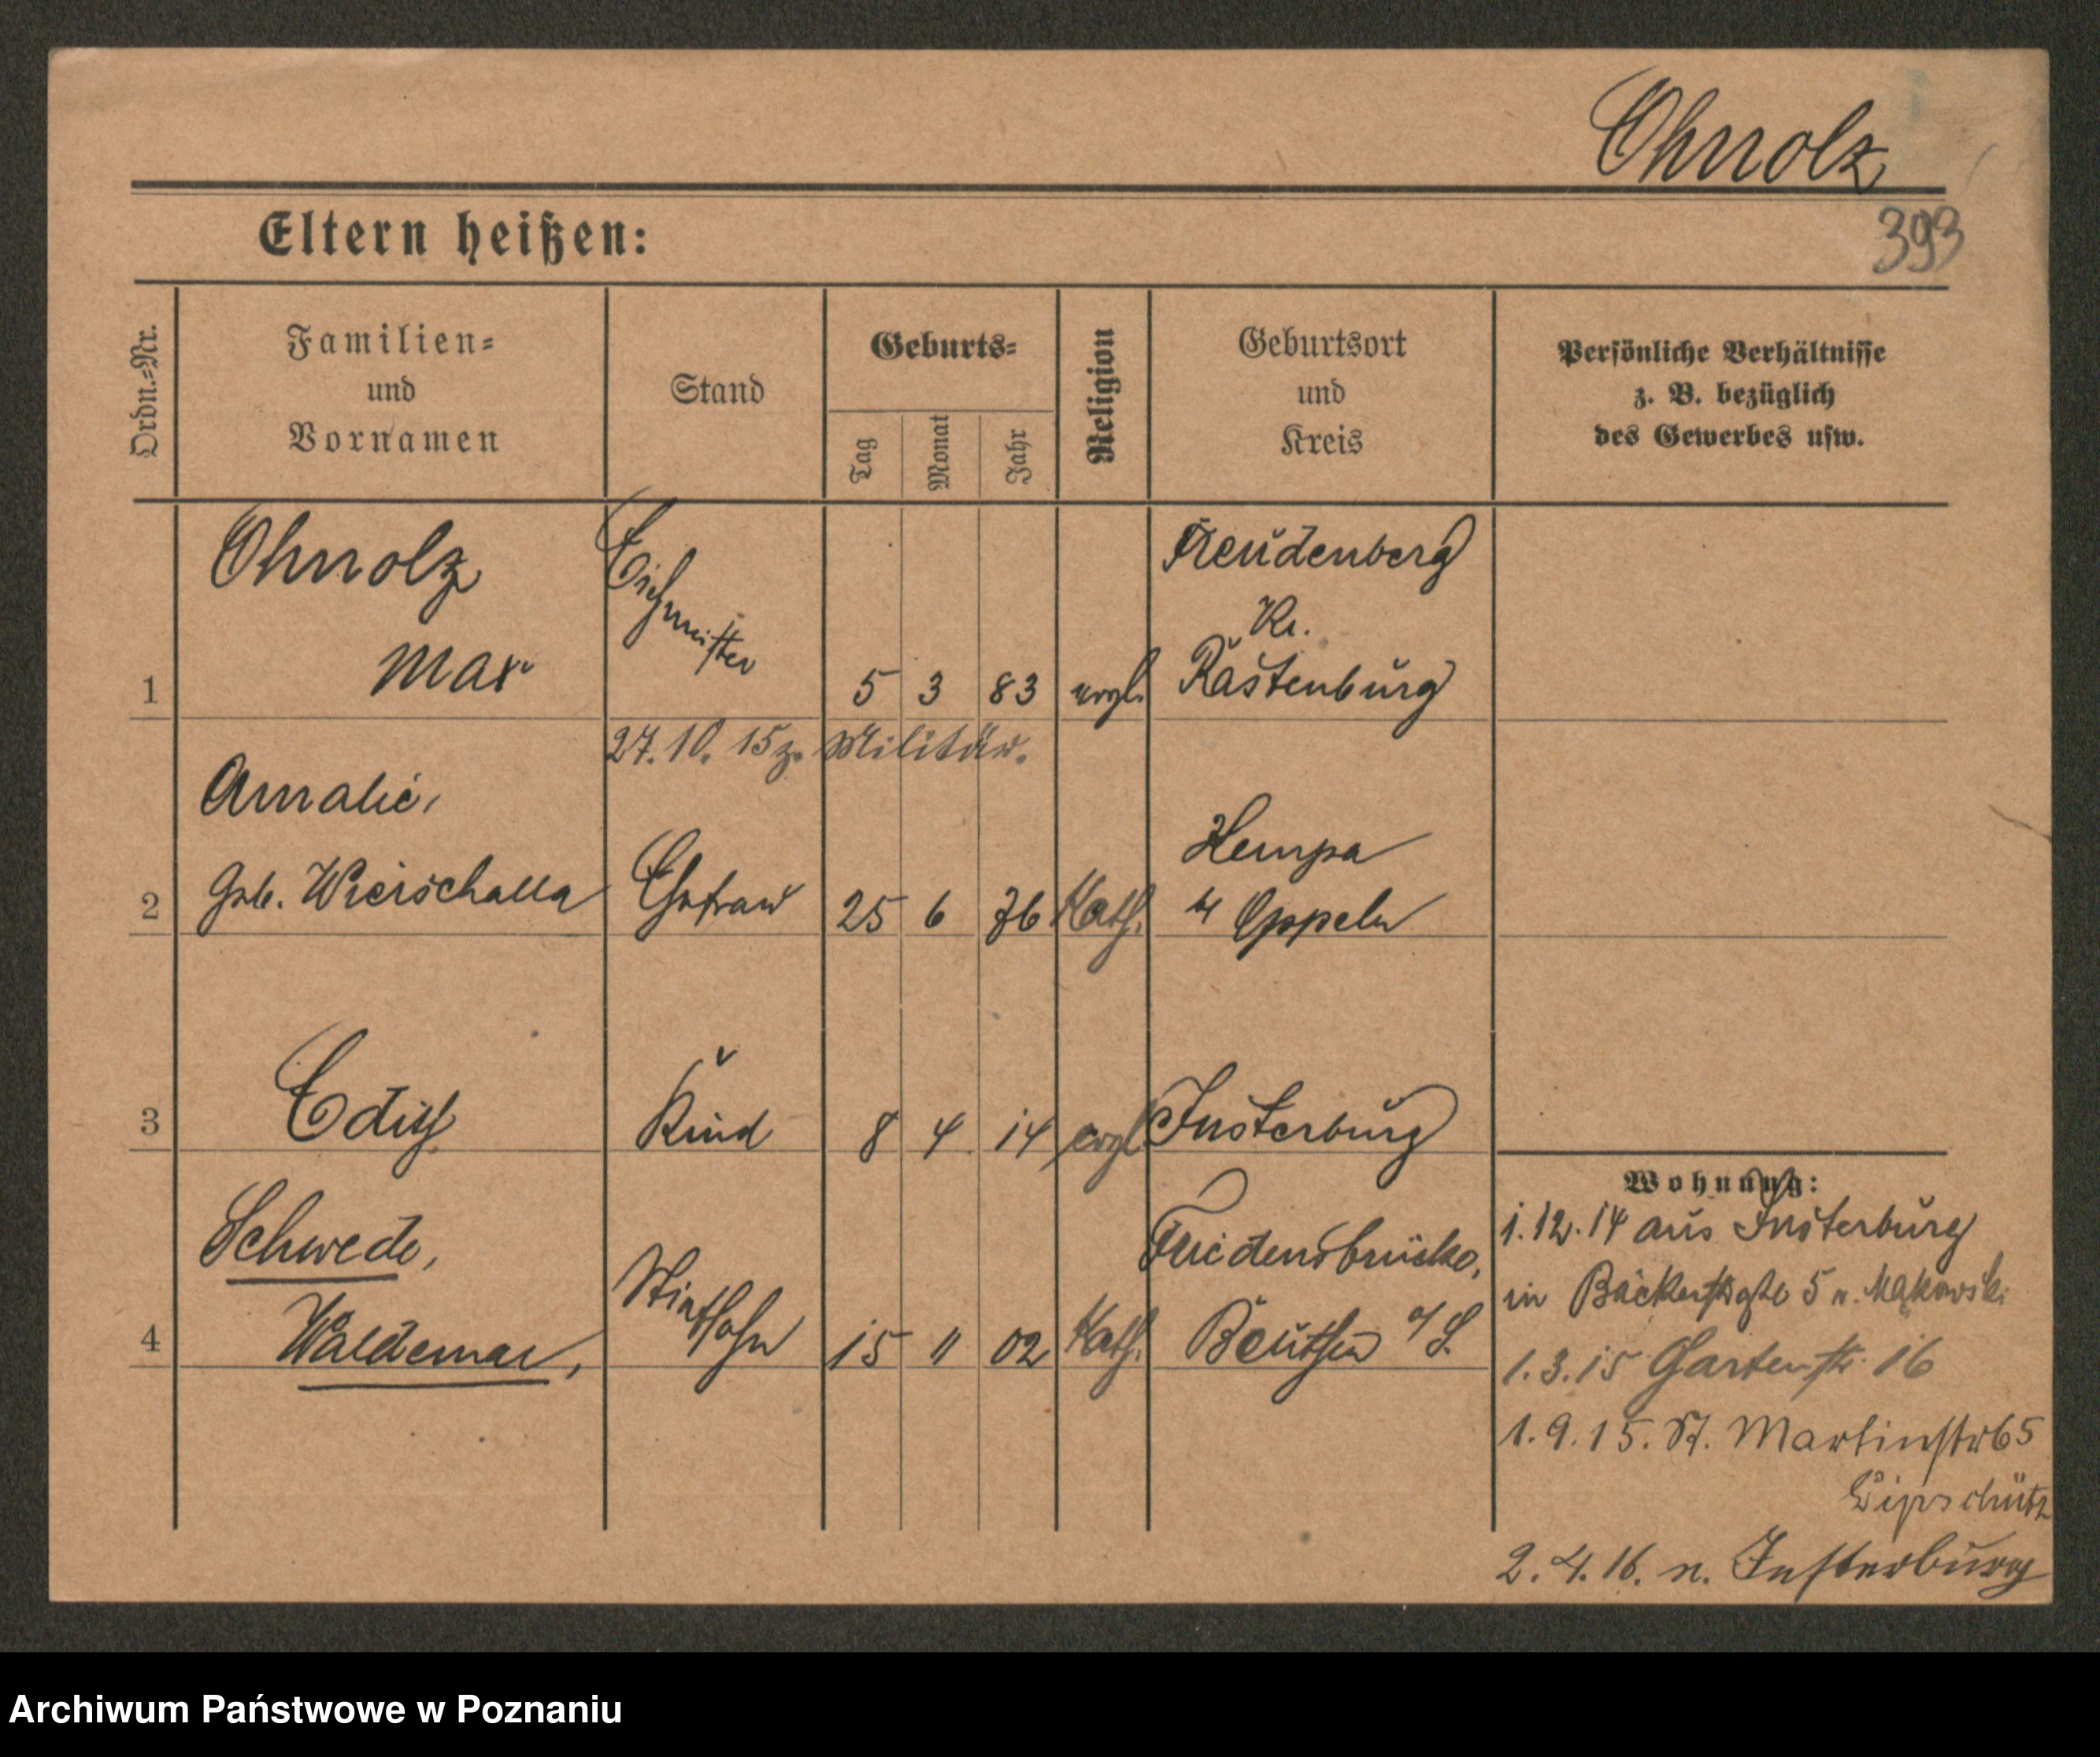 Ohnolz
393
Eltern heißen:
Ordn.-Nr.
Familien-
und
Vornamen
Stand
Geburts-
Tag
Monat
Jahr
Religion
Geburtsort
und
Kreis
Persönliche Verhältnisse
z. B. bezüglich
des Gewerbes usw.
1
Ohnolz
Max
Eichmeister
5 3 83 evgl.
Freudenberg
Kr.
Rastenburg
27. 10. 15 z. Militär.
2
Amalie,
Geb. Wierschalla
Ehefrau
25 6 76 Kath.
Kempa
Oppeln
3
Edith
Kind
8 4 14 evgl
Insterburg
4
Schwede,
Waldemar,
Stiefsohn
15 11 02 Kath.
Friedensbrücke,
Beuthen o/S.
Wohnung:
1. 12. 14 aus Insterburg
in Bäckerstraße 5 n. Makowski
1. 3. 15 Gartenstr. 16
1. 9. 15. St. Martinstr 65
Lipschütz
2. 4. 16. n. Insterburg
Archiwum Państwowe w Poznaniu